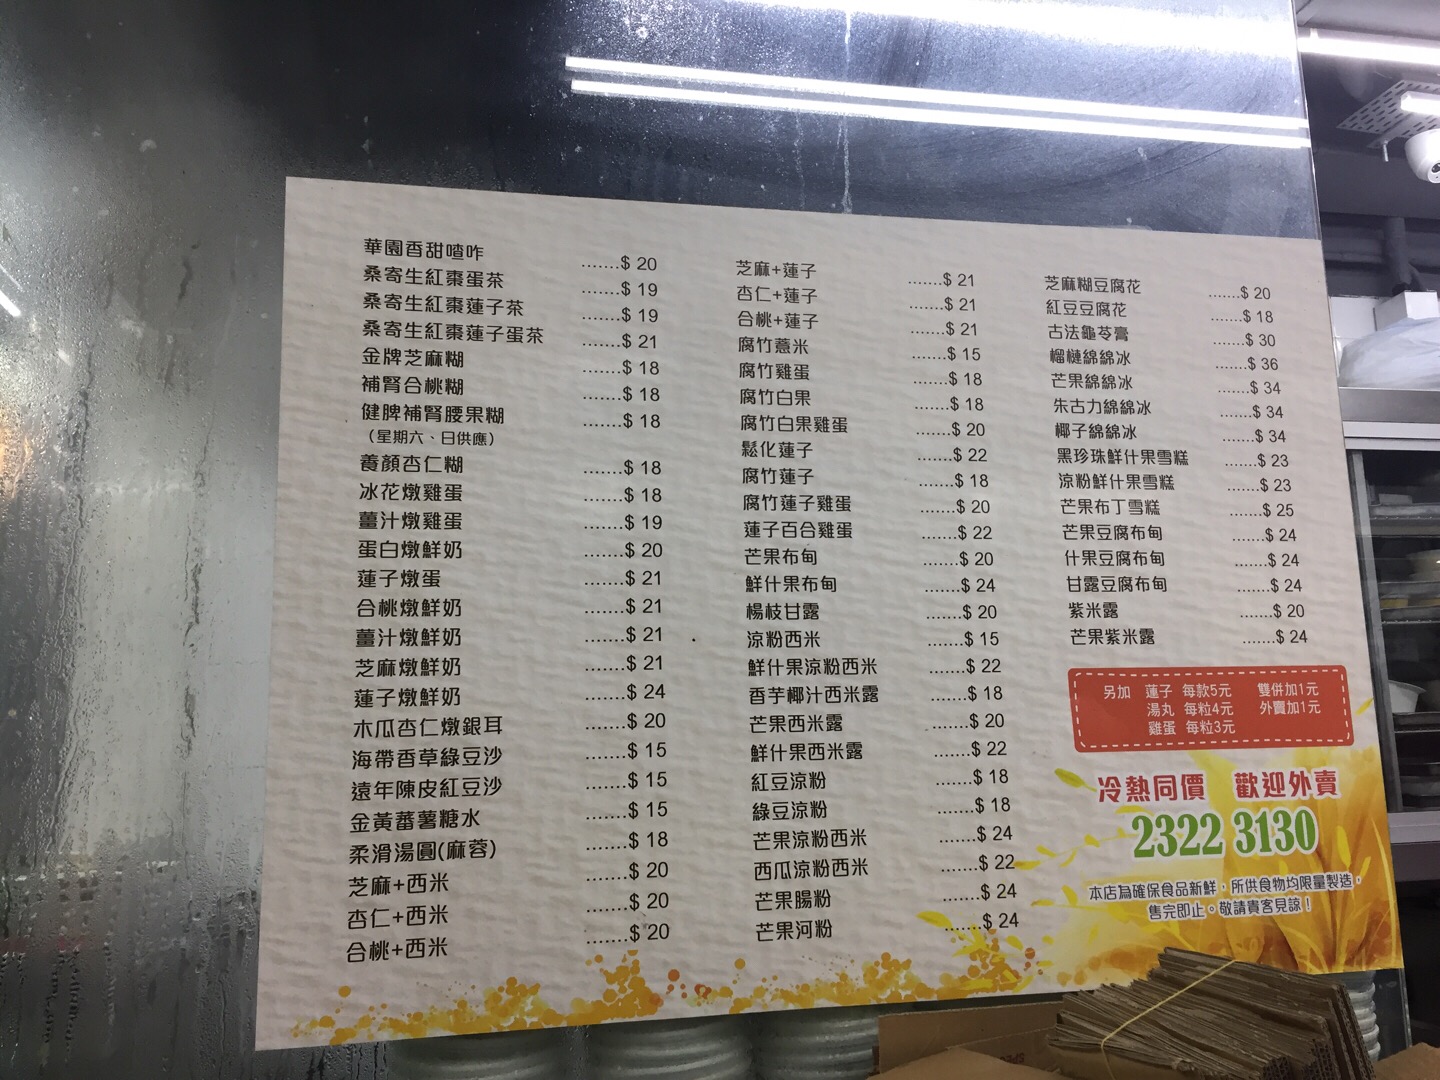 華園香甜喳咋 .......$ 20
桑寄生紅棗蛋茶 .......$ 19
桑寄生紅棗蓮子茶 .......$ 19
桑寄生紅棗蓮子蛋茶 .......$ 21
金牌芝麻糊 .......$ 18
補腎合桃糊 .......$ 18
健脾補腎腰果糊 .......$ 18
（星期六、日供應）
養顏杏仁糊 .......$ 18
冰花燉雞蛋 .......$ 18
薑汁燉雞蛋 .......$ 19
蛋白燉鮮奶 .......$ 20
蓮子燉蛋 .......$ 21
合桃燉鮮奶 .......$ 21
薑汁燉鮮奶 .......$ 21
芝麻燉鮮奶 .......$ 21
蓮子燉鮮奶 .......$ 24
木瓜杏仁燉銀耳 .......$ 20
海帶香草綠豆沙 .......$ 15
遠年陳皮紅豆沙 .......$ 15
金黃蕃薯糖水 .......$ 15
柔滑湯圓(麻蓉) .......$ 18
芝麻+西米 .......$ 20
杏仁+西米 .......$ 20
合桃+西米 .......$ 20
芝麻+蓮子 .......$ 21
杏仁+蓮子 .......$ 21
合桃+蓮子 .......$ 21
腐竹薏米 .......$ 15
腐竹雞蛋 .......$ 18
腐竹白果 .......$ 18
腐竹白果雞蛋 .......$ 20
鬆化蓮子 .......$ 22
腐竹蓮子 .......$ 18
腐竹蓮子雞蛋 .......$ 20
蓮子百合雞蛋 .......$ 22
芒果布甸 .......$ 20
鮮什果布甸 .......$ 24
楊枝甘露 .......$ 20
涼粉西米 .......$ 15
鮮什果涼粉西米 .......$ 22
香芋椰汁西米露 .......$ 18
芒果西米露 .......$ 20
鮮什果西米露 .......$ 22
紅豆涼粉 .......$ 18
綠豆涼粉 .......$ 18
芒果涼粉西米 .......$ 24
西瓜涼粉西米 .......$ 22
芒果腸粉 .......$ 24
芒果河粉 .......$ 24
芝麻糊豆腐花 .......$ 20
紅豆豆腐花 .......$ 18
古法龜苓膏 .......$ 30
榴槤綿綿冰 .......$ 36
芒果綿綿冰 .......$ 34
朱古力綿綿冰 .......$ 34
椰子綿綿冰 .......$ 34
黑珍珠鮮什果雪糕 .......$ 23
涼粉鮮什果雪糕 .......$ 23
芒果布丁雪糕 .......$ 25
芒果豆腐布甸 .......$ 24
什果豆腐布甸 .......$ 24
甘露豆腐布甸 .......$ 24
紫米露 .......$ 20
芒果紫米露 .......$ 24
另加 蓮子 每款5元 雙併加1元
湯丸 每粒4元 外賣加1元
雞蛋 每粒3元
冷熱同價 歡迎外賣
2322 3130
本店為確保食品新鮮，所供食物均限量製造，
售完即止。敬請貴客見諒！